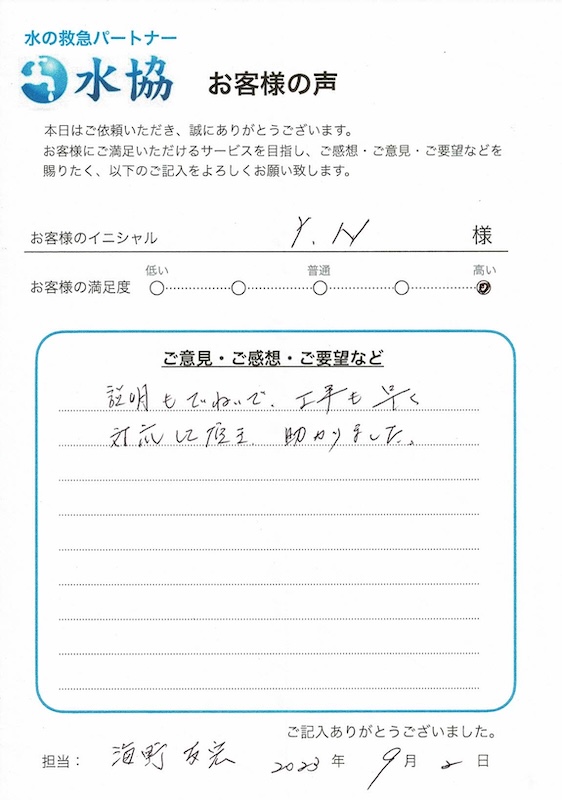 水の救急パートナー
水協 お客様の声
本日はご依頼いただき、誠にありがとうございます。
お客様にご満足いただけるサービスを目指し、ご感想・ご意見・ご要望などを
賜りたく、以下のご記入をよろしくお願い致します。
お客様のイニシャル Y.N 様
低い 普通 高い
お客様の満足度
ご意見・ご感想・ご要望など
説明もていねいで、工事も早く
対応して頂き、助かりました。
ご記入ありがとうございました。
担当： 海野 友宏 2023 年 9 月 2 日